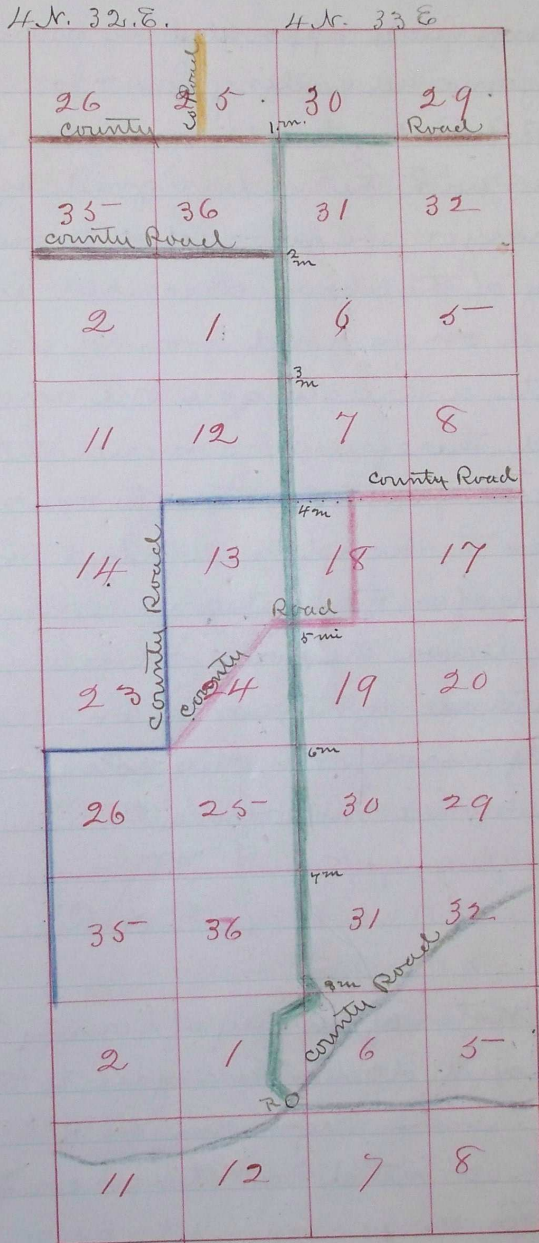 4 N. 32. E. 4 N. 33 E
Co Road
26 25 30 29
County 1 m. Road
35 36 31 32
County Road
2 m
2 1 6 5
3 m
11 12 7 8
County Road
4 m
14 13 18 17
County Road
Road
5 mi
County
23 24 19 20
6 m
26 25 30 29
7 m
35 36 31 32
8 m
County Road
2 1 6 5
11 12 7 8